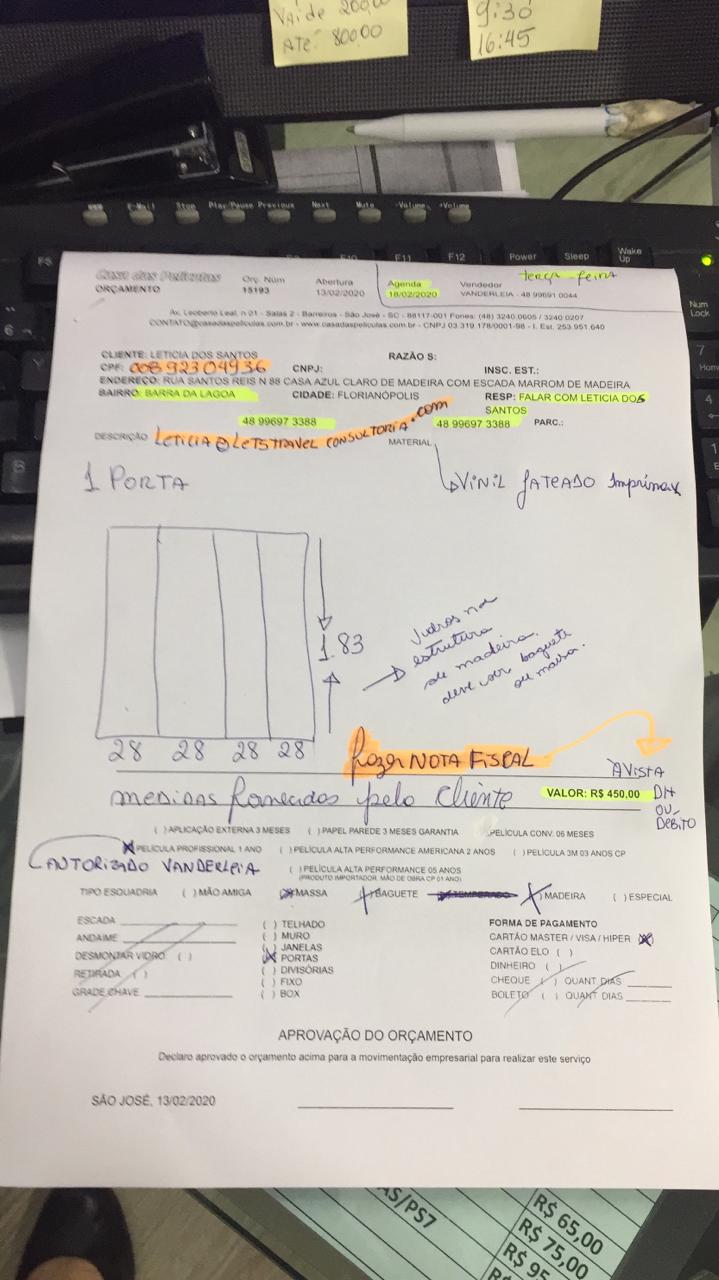 Vai de
ATÉ: 80000
9:30
16:45
E-Mail Stop Play/Pause Previous Next Mute -Volume +Volume
F11 F12 Power Sleep Wake Up
Num Lock
Casa das Películas
ORÇAMENTO
Orç. Núm
15193
Abertura
13/02/2020
Agenda
18/02/2020
terça-feira
Vendedor
VANDERLEIA - 48 99691 0044
Av. Leoberto Leal, n 01 - Salas 2 - Barreiros - São José - SC - 88117-001 Fones: (48) 3240.0605 / 3240.0207
CONTATO@casadaspeliculas.com.br - www.casadaspeliculas.com.br - CNPJ 03.319.178/0001-98 - I. Est. 253.951.640
CLIENTE: LETICIA DOS SANTOS RAZÃO S:
CPF: 00892304936 CNPJ: INSC. EST.:
ENDEREÇO: RUA SANTOS REIS N 88 CASA AZUL CLARO DE MADEIRA COM ESCADA MARROM DE MADEIRA
BAIRRO: BARRA DA LAGOA CIDADE: FLORIANÓPOLIS RESP: FALAR COM LETICIA DOS
SANTOS
48 99697 3388 48 99697 3388 PARC.:
DESCRIÇÃO LETICIA@LETSTRAVELCONSULTORIA.COM MATERIAL
1 PORTA
VINIL JATEADO Imprimax
1.83
Vidros na
estrutura
de madeira.
deve ser baguete
ou massa.
28 28 28 28
fazer NOTA FISCAL
AVISTA
medidas fornecidas pelo cliente
VALOR: R$ 450,00 DH
OU
DÉBITO
( ) APLICAÇÃO EXTERNA 3 MESES ( ) PAPEL PAREDE 3 MESES GARANTIA PELÍCULA CONV. 06 MESES
PELÍCULA PROFISSIONAL 1 ANO ( ) PELÍCULA ALTA PERFORMANCE AMERICANA 2 ANOS ( ) PELÍCULA 3M 03 ANOS CP
AUTORIZADO VANDERLEIA
( ) PELÍCULA ALTA PERFORMANCE 05 ANOS
(PRODUTO IMPORTADOR. MÃO DE OBRA CP 01 ANO)
TIPO ESQUADRIA ( ) MÃO AMIGA (X) MASSA X BAGUETE X) MADEIRA ( ) ESPECIAL
ESCADA
ANDAIME
DESMONTAR VIDRO ( )
RETIRADA ( )
GRADE CHAVE
( ) TELHADO
( ) MURO
( ) JANELAS
(X) PORTAS
( ) DIVISÓRIAS
( ) FIXO
( ) BOX
FORMA DE PAGAMENTO
CARTÃO MASTER / VISA / HIPER (X)
CARTÃO ELO ( )
DINHEIRO ( )
CHEQUE ( ) QUANT DIAS
BOLETO ( ) QUANT DIAS
APROVAÇÃO DO ORÇAMENTO
Declaro aprovado o orçamento acima para a movimentação empresarial para realizar este serviço
SÃO JOSÉ, 13/02/2020
AS/PS7
R$ 65,00
R$ 75,00
R$ 95